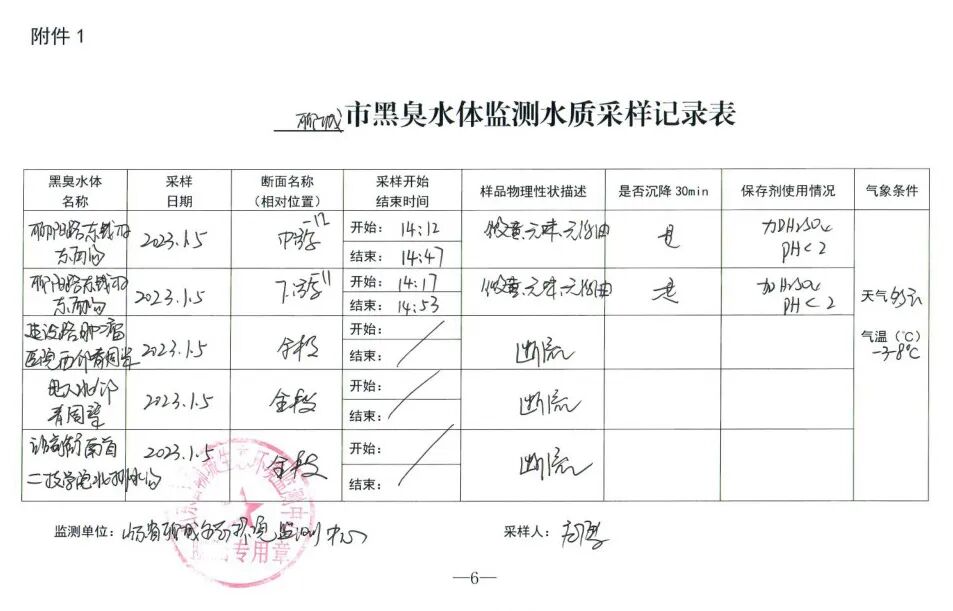 附件1
聊城市黑臭水体监测水质采样记录表
黑臭水体名称 采样日期 断面名称(相对位置) 采样开始结束时间 样品物理性状描述 是否沉降30min 保存剂使用情况 气象条件
聊阳路东 2023.1.5 中游-12 开始:14:12 微黄无味无浮油 是 加H2SO4
结束:14:47 PH<2
聊阳路东 2023.1.5 下游-11 开始:14:17 微黄无味无浮油 是 加H2SO4
结束:14:53 PH<2
天气 多云
气温(℃)
-3-8℃
建设路 2023.1.5 全段 开始: 断流
医院西 结束:
2023.1.5 全段 开始: 断流
结束:
南首 2023.1.5 全段 开始: 断流
结束:
监测单位:山东省聊城生态环境监测中心 采样人:
专用章
—6—